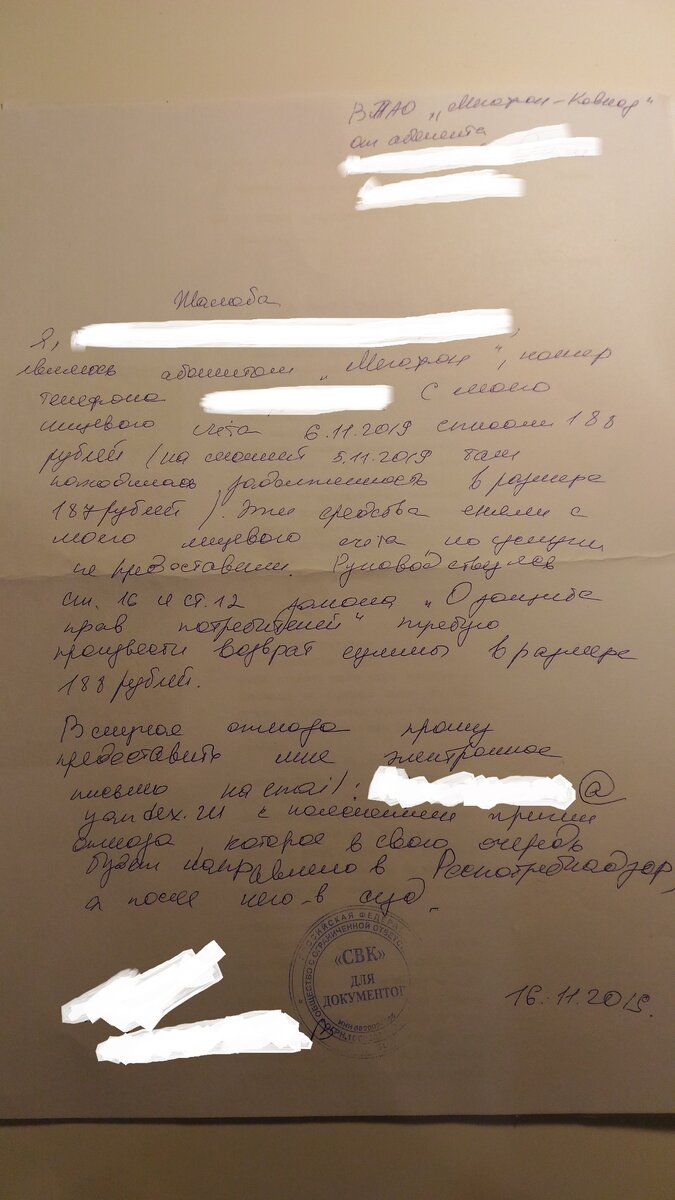 В ПАО „Мегафон-Кавказ"
от абонента
Жалоба
Я,
являюсь абонентом „Мегафон", номер
телефона С моего
лицевого счёта 6.11.2019 списали 188
рублей (на момент 5.11.2019 там
находилась задолженность в размере
187 рублей). Эти средства сняли с
моего лицевого счета, но услуги
не предоставили. Руководствуясь
ст. 16 и ст. 12 закона „О защите
прав потребителей" требую
произвести возврат суммы в размере
188 рублей.
В случае отказа прошу
предоставить мне электронное
письмо на email: @
yandex.ru с пояснением причин
отказа, которое в свою очередь
будет направлено в Роспотребнадзор,
а после него - в суд.
РОССИЙСКАЯ ФЕДЕРА
ОБЩЕСТВО С ОГРАНИЧЕННОЙ ОТВЕТС
«СВК»
ДЛЯ
ДОКУМЕНТОВ
ИНН
ОГРН
16.11.2019.